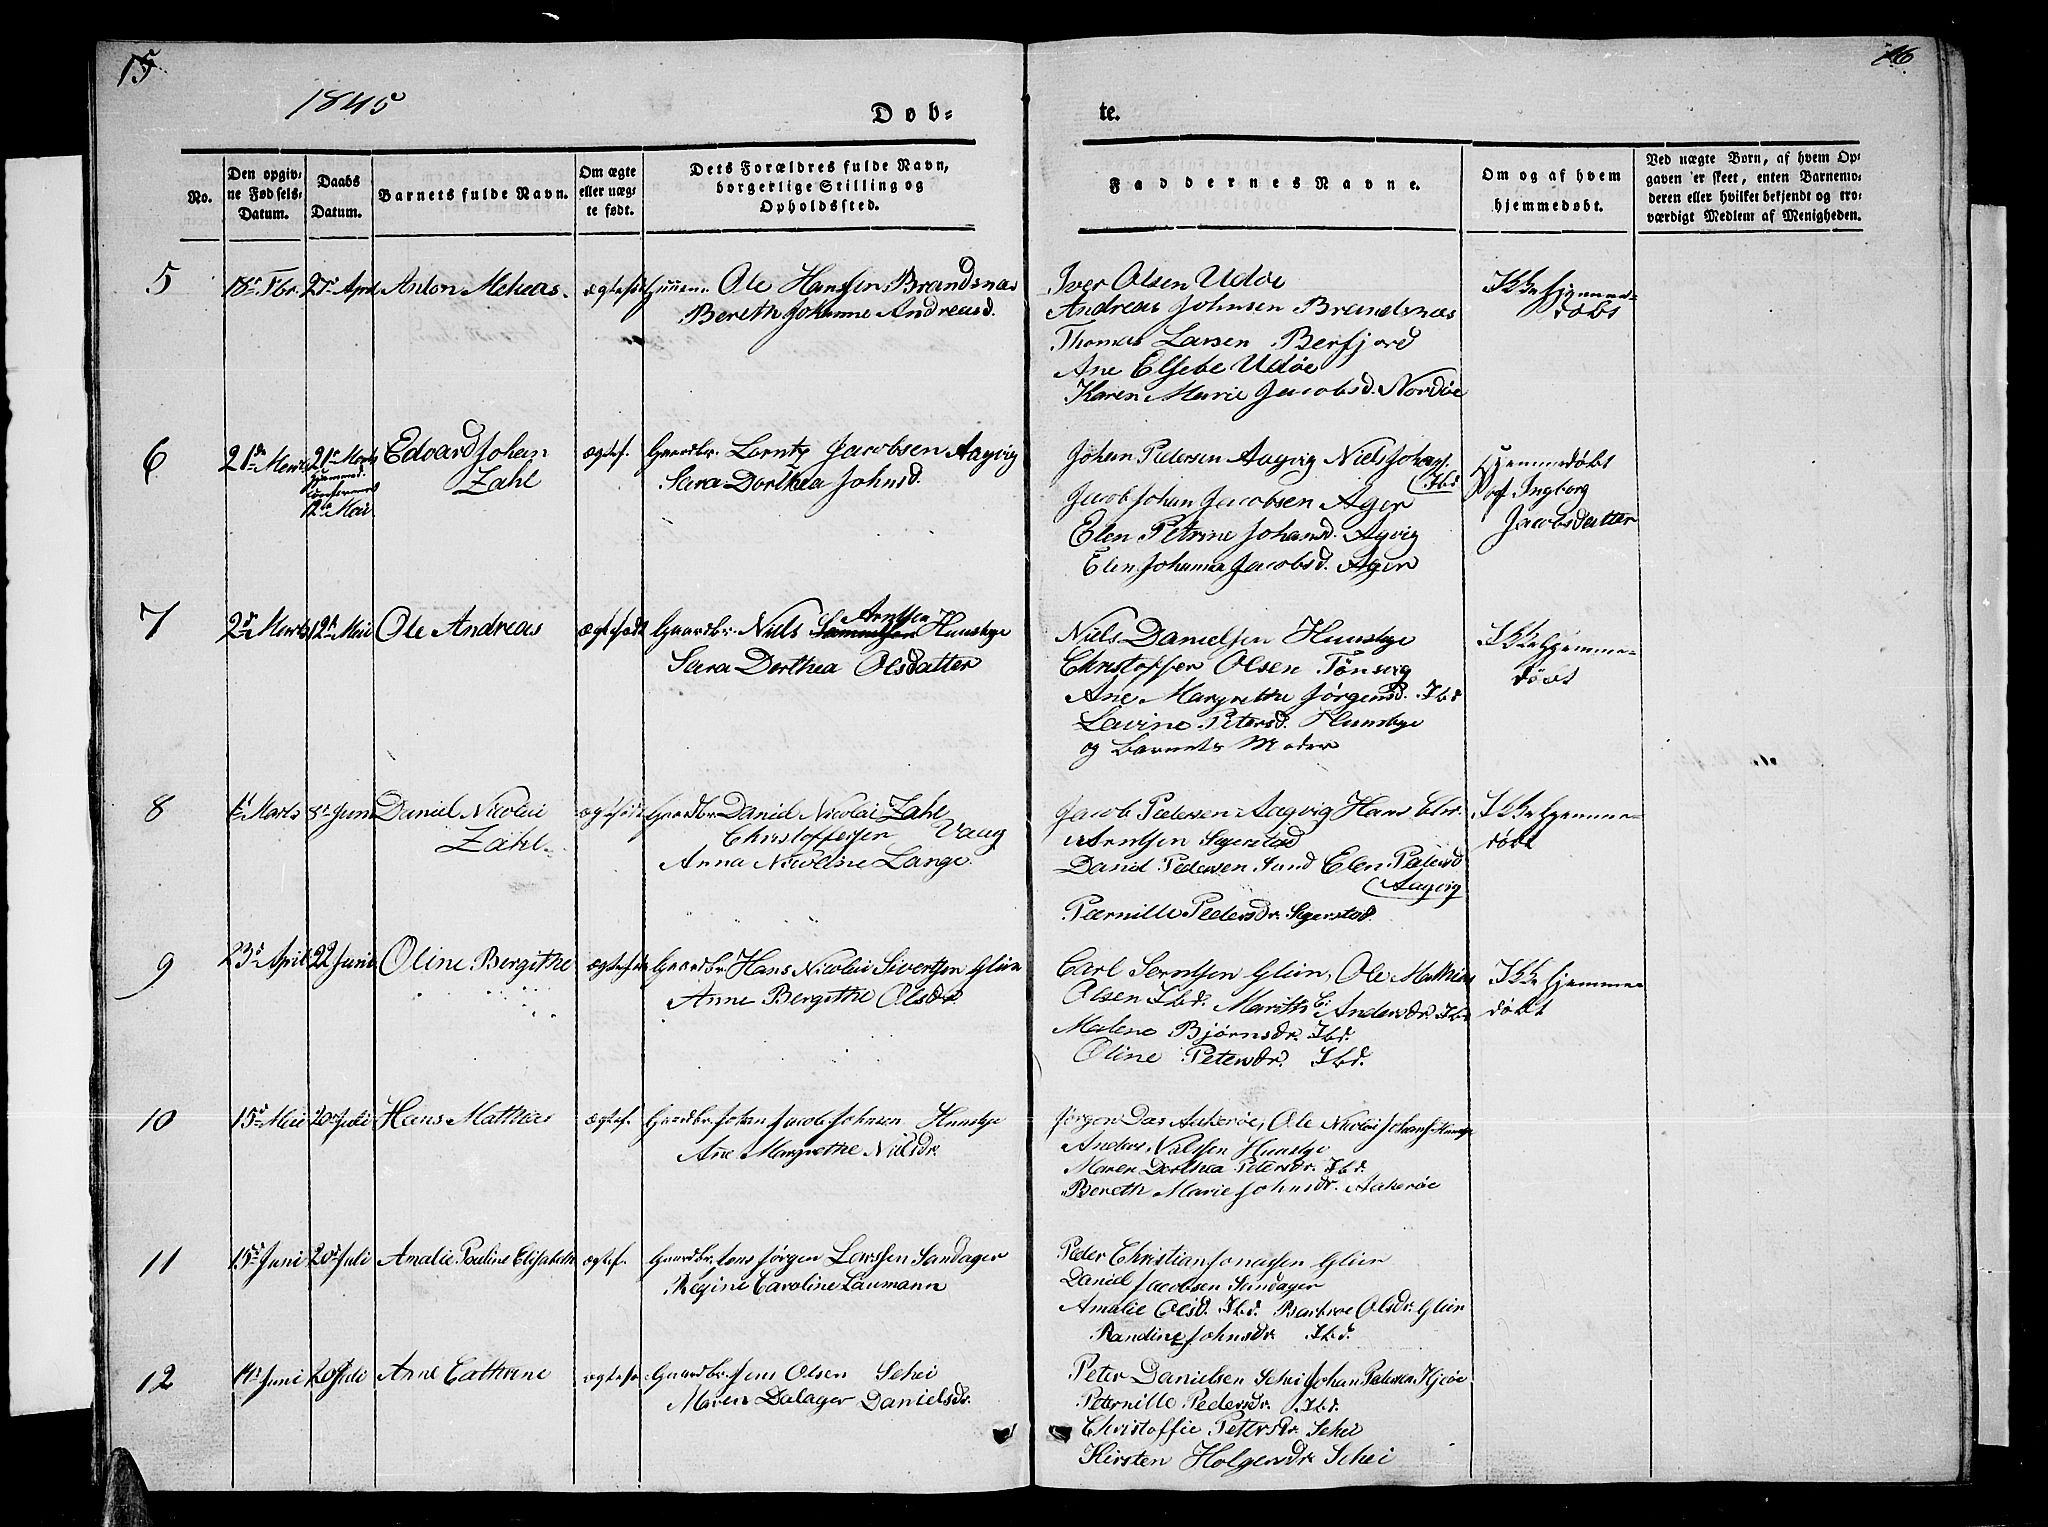 15
16
1845
Døb-
te.
No.
Den opgiv-
ne Fødsels-
Datum.
Daabs
Datum.
Barnets fulde Navn.
Om ægte
eller uæg-
te født.
Dets Forældres fulde Navn,
borgerlige Stilling og
Opholdssted.
Faddernes Navne.
Om og af hvem
hjemmedøbt.
Ved uægte Børn, af hvem Op-
gaven er skeet, enten Barnemo-
deren eller hvilket bekjendt og tro-
værdigt Medlem af Menigheden.
5
18de Fbr.
27de April
Anton
ægtefødt
Ole Hanssen Brandsnæs
Bereth Johanne Andreasd.
Iver Olsen Udøe
Andreas Johnsen Brandsnæs
Thomas Larsen Berfjord
Ane Elsebe Udøe
Karen Marie Jacobsd. Nordöe
Ikke hjemme-
døbt
6
21de Marts
21de Marts
hjemmed.
confirmered
12te Mai
Edvard Johan
Zahl
ægtef.
Gaardbr. Lorntz Jacobsen Aagvig
Sara Dorthea Johnsd.
Johan Pedersen Aagvig Niels Johans.
(Ibd
Jacob Johan Jacobsen Ager
Elen Petrine Johansd. Agvig
Elen Johanna Jacobsd. Ager
Hjemmedøbt
af Ingborg
Jacobsdatter
7
2de Marts
12te Mai
Ole Andreas
ægtefødt
Arntsen
Gaardbr. Niels Samuelsen Hunsbye
Sara Dorthea Olsdatter
Niels Danielsen Hunsbye
Christoffer Olsen Tønsvig
Ane Margrethe Jørgensd. Ibd
Lavine Petersd. Hunsbye
og Barnets Moder
Ikke hjemme-
døbt
8
1te Marts
8de Juni
Daniel Nicolai
Zahl
ægtefødt
Gaardbr. Daniel Nicolai Zahl
Christoffersen Vaag
Anna Nicoline Lange
Jacob Pedersen Aagvig Hans Chr.
Arntsen Segerstad
Daniel Pedersen Sund Elen Petersd
(Aagvig
Pernille Pedersdr. Segerstad
Ikke hjemme-
døbt
9
23de April
22 Juni
Oline Bergithe
ægtefødt
Gaardbr. Hans Nicolai Sivertsen Glein
Anne Bergithe Olsdr
Carl Serntsen Glein, Ole Mathias
Olsen Ibd. Mareth C: Andersdr. Ibd
Malene Bjørnsdr. Ibd.
Oline Petersdr. Ibd.
Ikke hjemme-
døbt
10
15de Mai
20de Juli
Hans Mathias
ægtef.
Gaardbr. Johan Jacob Johnsen Hunsbye
Ane Margrethe Nielsdr.
Jørgen Das Aakerøe, Ole Nicolai Johans. Hunsbye
Anders Nielssen Hunsbye
Maren Dorthea Petersdr. Ibd.
Bereth Marie Johnsdr. Aakerøe
11
15de Juni
20de Juli
Amalie Pauline Elisabeth
ægtef.
Gaardbr. Jens Jørgen Larssen Sandager
Regine Caroline Laumann
Peder Christian Jonassen Glein
Daniel Jacobsen Sandager
Amalie Olsd. Ibd. Barbroe Olsdr. Glein
Randine Johnsdr. Ibd.
12
14de Juni
20de Juli
Ane Cathrine
ægtefø.
Gaardbr. Jens Olsen Schei
Maren Dalager Danielsdr.
Peter Danielsen Schei Johan Pedersen Hjøe
Peternille Pedersdr. Ibd.
Christoffie Petersdr. Schei
Kirsten Holgersdr. Schei